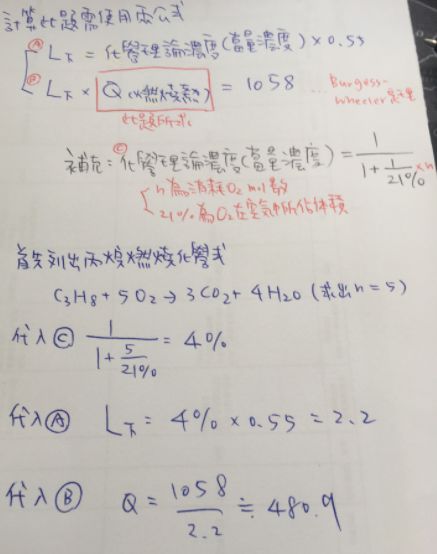 計算此題需使用兩公式
Ⓐ L下 = 化學理論濃度(當量濃度) × 0.55
Ⓑ L下 × Q(燃燒熱) = 1058 … Burgess-Wheeler定理
此題所求
補充: Ⓒ 化學理論濃度(當量濃度) = 1 / (1 + 1/21% × n)
n 為消耗O2 mol數
21% 為O2在空氣中所佔体積
首先列出丙烷燃燒化學式
C3H8 + 5O2 → 3CO2 + 4H2O (求出n = 5)
代入Ⓒ 1 / (1 + 5/21%) = 4%
代入Ⓐ L下 = 4% × 0.55 = 2.2
代入Ⓑ Q = 1058 / 2.2 ≒ 480.9